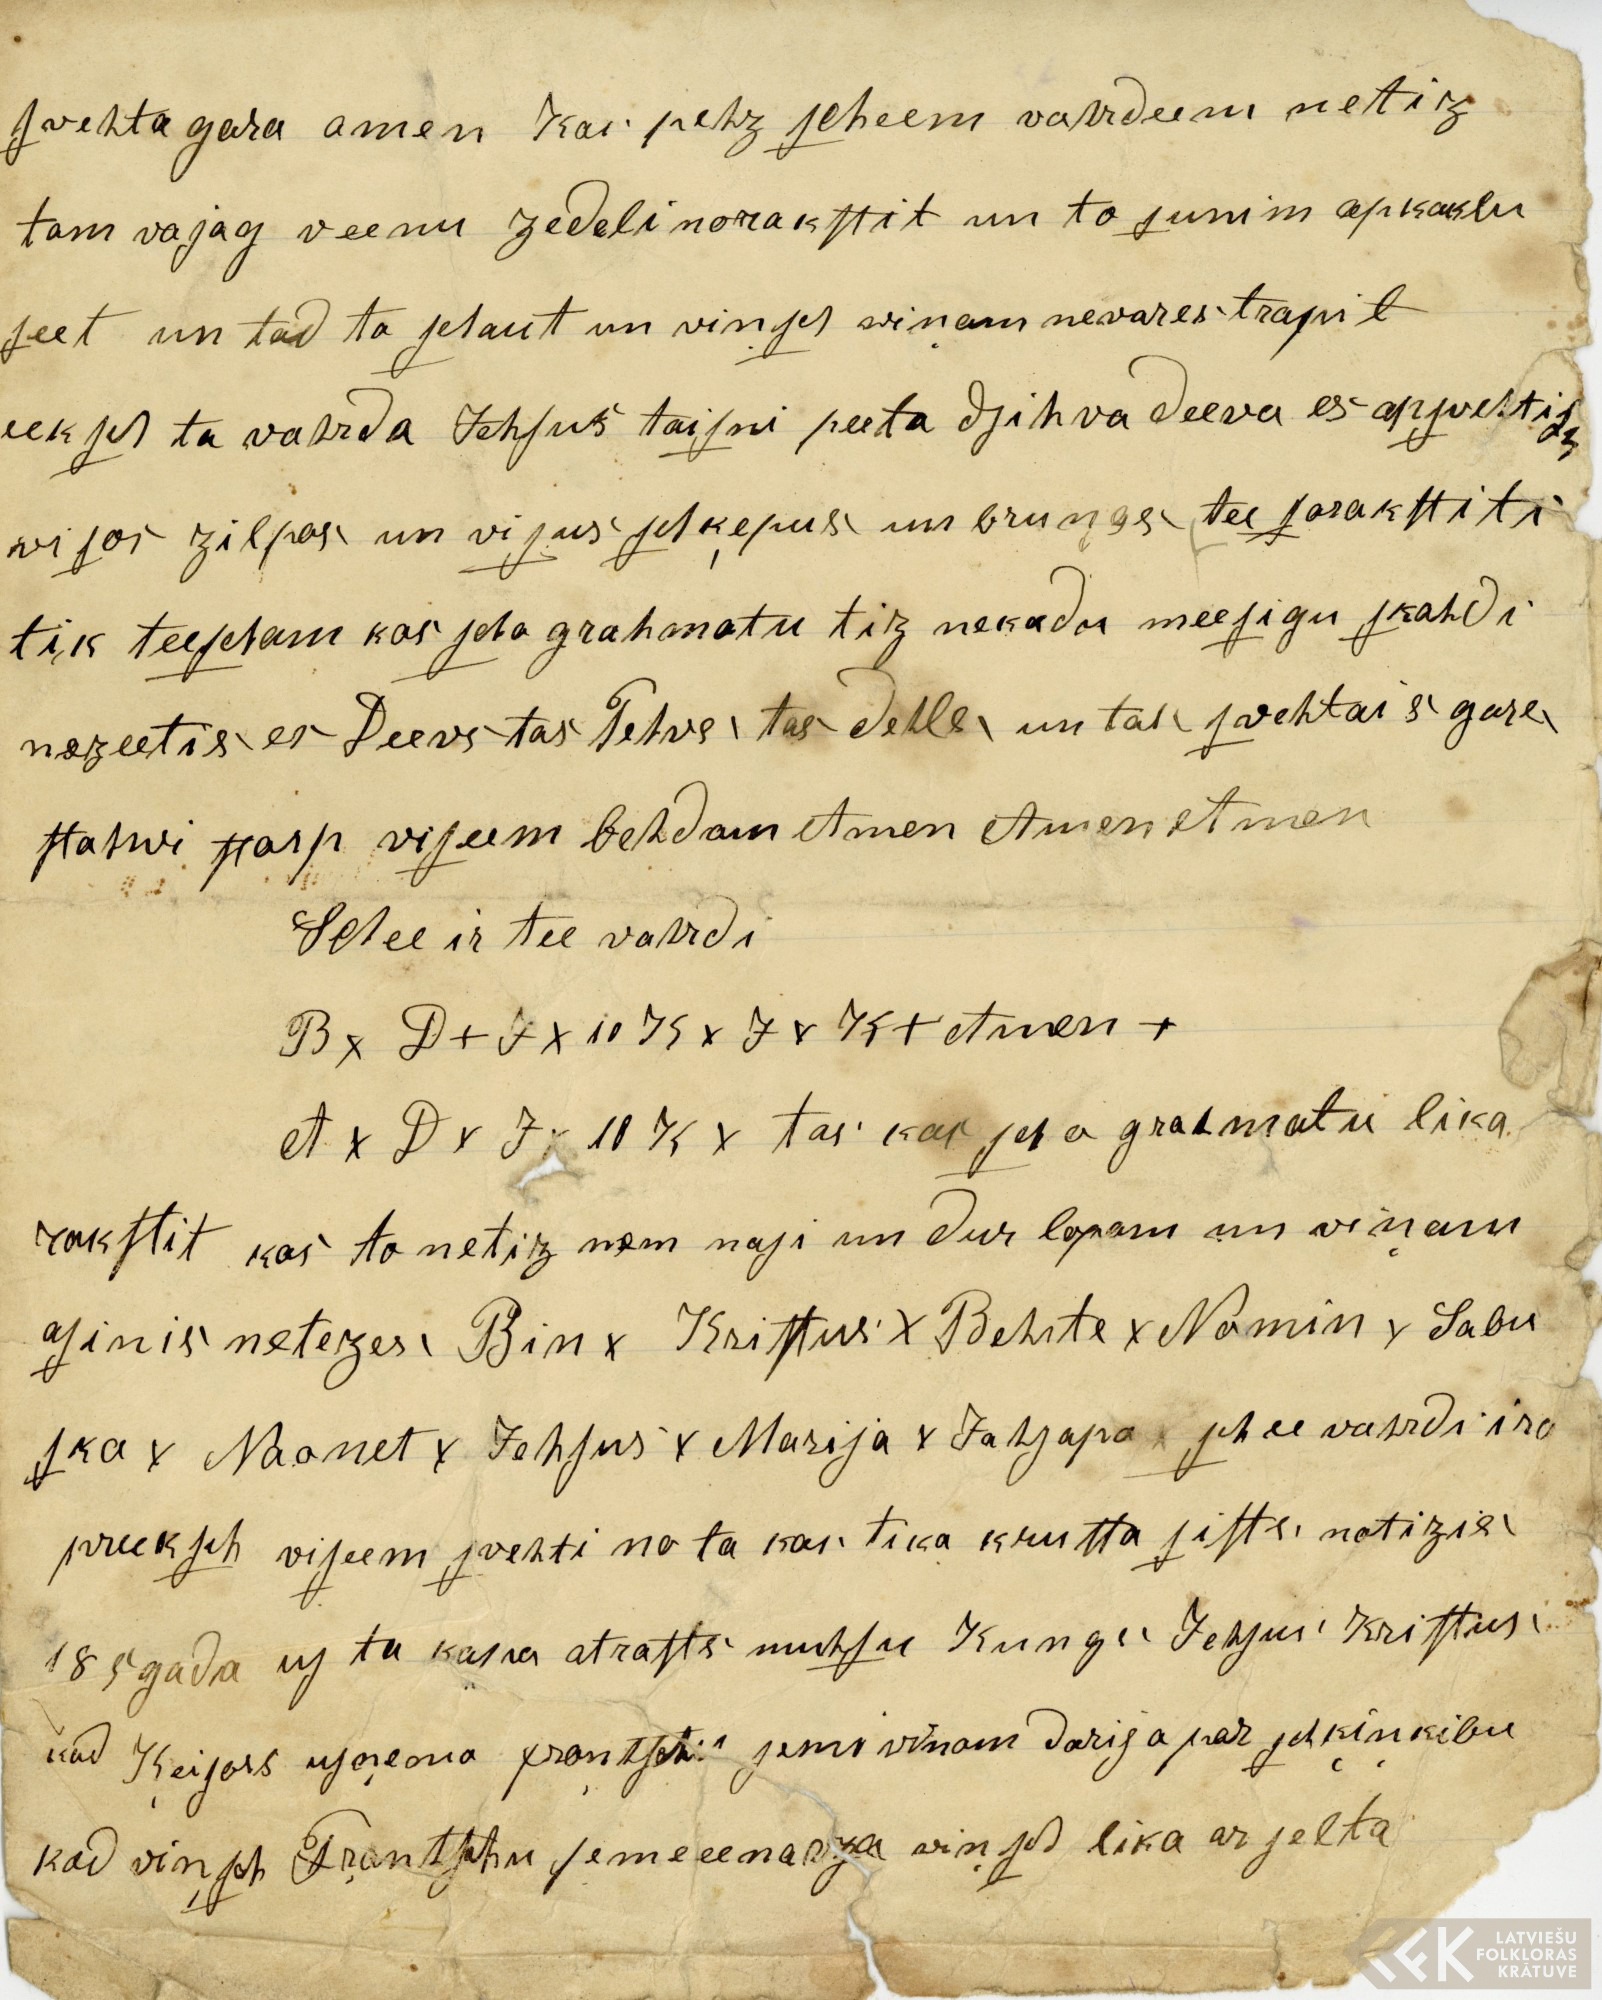 ſvehta gara amen Kas pehz ſcheem vahrdeem netiz
tam vajag veenu zedeli norakſtit un to ſunim apkaklu
ſeet un tad to ſchaut un viņſch viņam nevares trapit
eekſch ta vahrda Jehſus taiſni peeta dſihva deeva es apſvehtiſz
viſos zilpos un viſus ſchķepus un bruņes tee ſarakſtiti
tik teeſcham kas ſcho grahmatu tiz nekadu meeſigu ſkahdi
nezeetis es Deevs tas Tehvs tas dehls un tas ſvehtais gars
ſtahvi ſtarp viſeem behdam Amen Amen Amen
Schee ir tee vahrdi
B x D + J x 10 K x J x K + Amen +
A x D x J x 10 K x tas kas ſcho grahmatu lika
rakſtit kas to netiz nem naſi un dur lopam un viņam
aſinis netezes Bin x Kriſtus x Behrte x Nomin x Sabu
ſka x Naonet x Jehſus x Marija x Jahſapa x ſchee vahrdi ira
preekſch viſeem ſvehti no ta kas tika kruſta ſiſts notizis
185 gada uſ ta kapa atraſts muhſu Kungs Jehſus Kriſtus
kad Keiſors uſņema ſemi viņam darija par ſchķinķibu
kad viņſch Frantſchu ſemi eenarza viņſch lika ar ſelta
LATVIEŠU
FOLKLORAS
KRĀTUVE